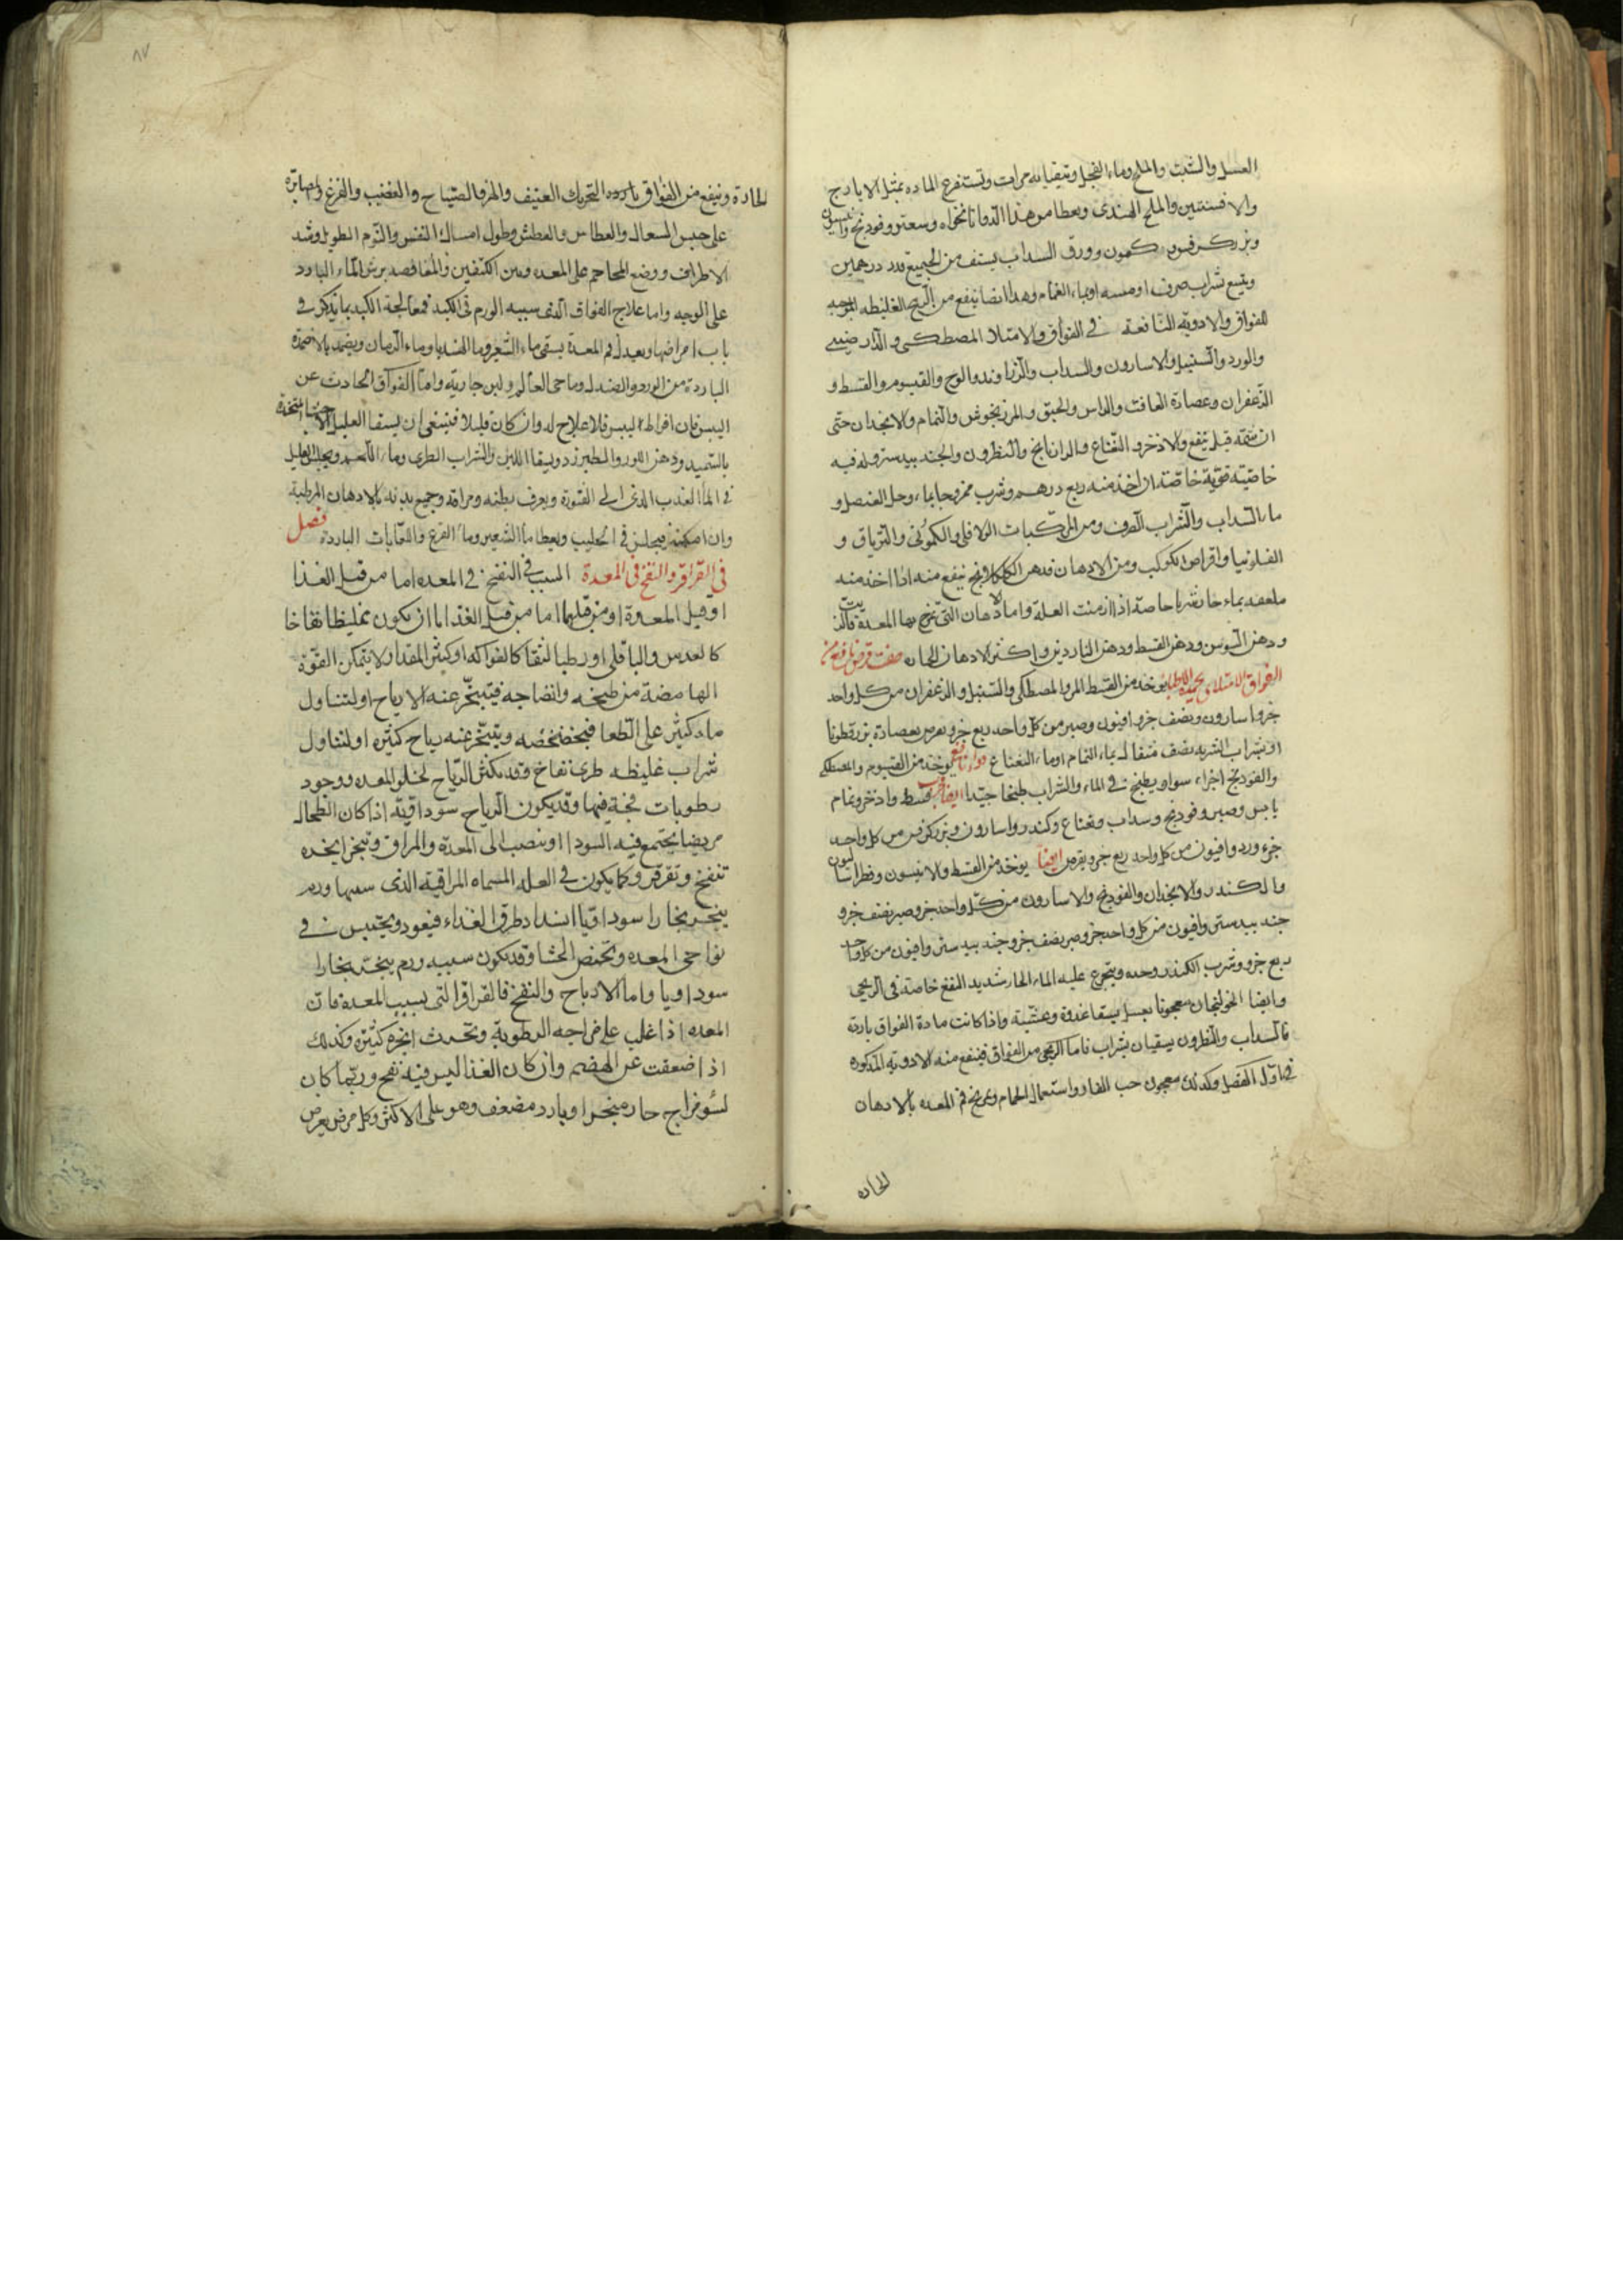 العسل والشبث والملح وماء الفجل وتيقيا به مرات وتستفرغ الماده بمثل الايارج
والافسنتين والملح الهندى ويعطا من هذا الدوا نانخواه وسعتر وفودنج وانيسون
وبزر كرفس وكمون وورق السداب يستف من الجميع قدر درهمين
ويتبع بشراب صرف او ميسه او بماء النمام وهذا ايضا ينفع من الريح الغليظه الموجبه
للفواق والادوية النافعة في الفواق والامتلا المصطكى والدار صينى
والورد والسنبل والاسارون والسداب والزراوند والوج والقيسوم والقسط و
الزعفران وعصارة الغافت والماس والحبق والمرزنجوش والنمام والانجدان حتى
ان شمه قيل ينفع والاذخر والنعناع والرازيانج والنطرون والجندبيدستر وله فيه
خاصية قوية خاصة ان اخذ منه ربع درهم وشرب ممزوجا بماء وخل العنصل و
ماء السداب والشراب الصرف ومن المركبات الفلافلى والكمونى والترياق و
الفلونيا واقراص الكوكب ومن الادهان دهن الكلكلانج ينفع منه اذا اخذ منه
ملعقه بماء حار شربا خاصة اذا ازمنت العلة واما الادهان التى تمرخ بها المعدة فالزيت
ودهن السوسن ودهن القسط ودهن الناردين واكثر الادهان الحاره صفت قرص نافع من
الفواق الامتلاى يوخذ من القسط المر والمصطكى والسنبل والزعفران من كل واحد
جزو اسارون ونصف جزو افيون وصبر من كل واحد ربع جزو يقرص بعصارة بزر قطونا
او بشراب الشربه نصف مثقال بماء النمام او ماء النعناع دواء نافع يوخذ من القيسوم والمصطكى
والفودنج اجزاء سوا ويطبخ في الماء والشراب طبخا جيدا ايضا قسط واذخر ونمام
يابس وصبر وفودنج وسداب ونعناع وكندر واسارون وبزر كرفس من كل واحد
جزء ورد وافيون من كل واحد ربع جزو يقرص ايضا يوخذ من القسط والانيسون وفطراساليون
والكندر والانجدان والفودنج والاسارون من كل واحد جزو صبر نصف جزو
جندبيدستر وافيون من كل واحد جزو صبر نصف جزو جندبيدستر وافيون من كل واحد
ربع جزو وشرب الكندر وحده ويتجرع عليه الماء الحار شديد النفع خاصة في الريحى
وايضا الخولنجان معجونا بعسل يسقا غدوة وعشية واذا كانت مادة الفواق باردة
فالسداب والنطرون يسقيان بشراب فاما الريحى من الفواق فينفع منه الادوية المذكوره
في اول الفصل وكذلك معجون حب الغار واستعمال الحمام وتمريخ فم المعده بالادهان
الحاره
٨٧
الحادة وينفع من الفواق التحريك العنيف والهز والصياح والغضب والفزع والمصابرة
على حبس السعال والعطاس والعطش وطول امساك النفس والنوم الطويل وشد
الاطراف ووضع المحاجم على المعده وبين الكتفين والمغافصه برش الماء البارد
على الوجه واما علاج الفواق الذى سببه الورم في الكبد فمعالجة الكبد بما يذكر في
باب امراضها ويعدل فم المعدة بسقى ماء الشعير وما الهندبا وماء الرمان ويضمد بالاضمدة
الباردة من الورد والصندل وما حى العالم ولبن جارية واما الفواق الحادث عن
اليبس فان افراط اليبس فلا علاج له وان كان قليلا فينبغى ان يسقا العليل الاحسا المتخذة
بالسميد ودهن اللوز والطبرزد ويسقا اللبن والشراب الطرى وماء اللحم ويجلس العليل
في الما العذب الذى الى الفتورة ويعرف بطنه ومراقه وجميع بدنه بالادهان المرطبة
وان امكنه فيجلس في الحليب ويعطا ما الشعير وما القرع واللعابات الباردة فصل
في القراقر والنفخ في المعدة السبب في النفخ في المعده اما من قبل الغذا
او قبل المعدة او من قبلهما اما من قبل الغذا اما ان يكون غليظا نفاخا
كالعدس والباقلى او رطبا لثقا كالفواكه او كثير المقدار ولا يتمكن القوة
الهاضمة من طبخه وانضاجه فيتبخر عنه الارياح او لتناول
ماء كثير على الطعا فيخضخضه ويتبخر عنه رياح كثيره او لتناول
شراب غليظه طرى نفاخ وقد يكثر الرياح لخلو المعده ووجود
رطوبات فجة فيها وقد يكون الرياح سوداوية اذا كان الطحال
مريضا يجتمع فيه السودا او ينصب الى المعدة والمراق وتبخر ابخره
تنفخ وتقرقر وكما يكون في العله المسماه المراقية الذى سببها ورم
يبخر بخارا سوداويا انسداد طرق الغذاء فيعود ويحتبس في
نواحى المعده ويحمض الجشا وقد يكون سببه ورم يبخر بخارا
سوداويا واما الارياح والنفخ فالقراقر التى بسبب المعدة فان
المعده اذا غلب على مزاجه الرطوبة ويحدث ابخرة كثيرة وكذلك
اذا ضعفت عن الهضم وان كان الغذا ليس فيه نفخ وربما كان
لسوء مزاج حار مبخر او بارد مضعف وهو على الاكثر وكل مرض يعرض